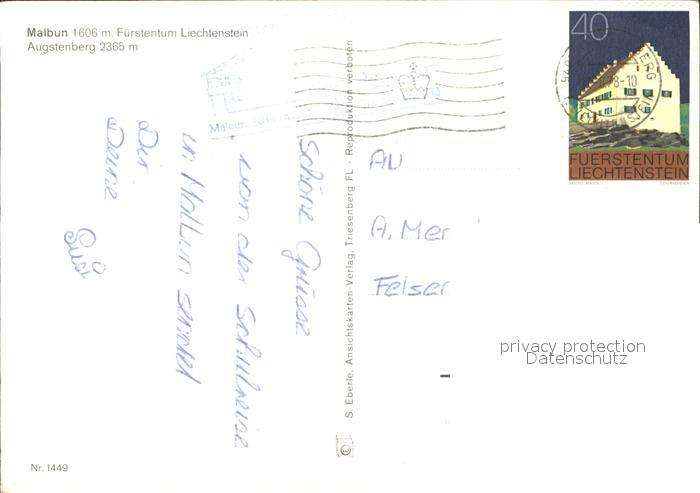 Malbun 1606 m. Fürstentum Liechtenstein
Augstenberg 2365 m
Malbun
Schöne Grüsse
von der Schulreise
in Malbun sendet
Dir
Deine
Susi
S. Eberle, Ansichtskarten-Verlag, Triesenberg FL - Reproduktion verboten
40
8-10
FUERSTENTUM
LIECHTENSTEIN
An
A. Mer
Felser
privacy protection
Datenschutz
Nr. 1449